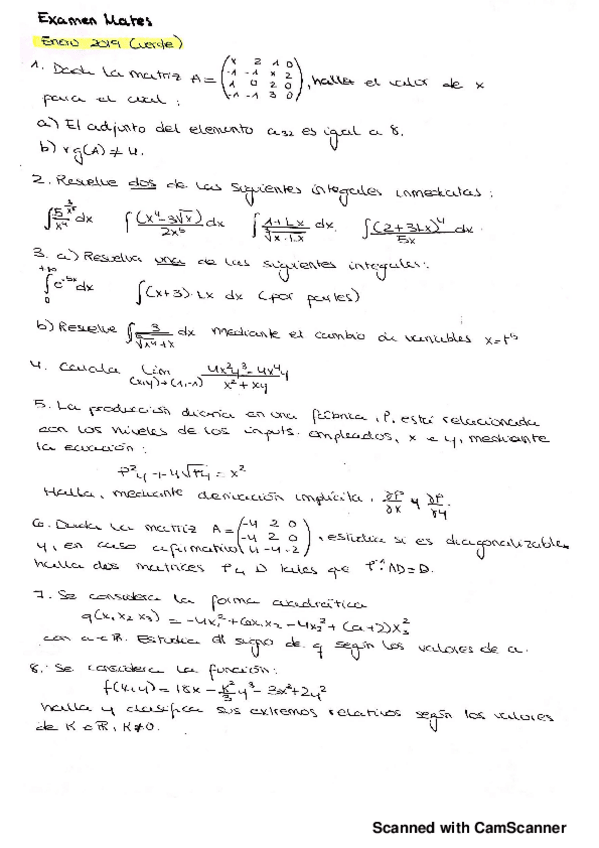 Examen Mates
Enero 2019 (verde)
1. Dada la matriz A = (x 2 1 0 / -1 -1 x 2 / 1 0 2 0 / -1 -1 3 0), hallar el valor de x
para el cual:
a) El adjunto del elemento a32 es igal a 8.
b) rg(A) ≠ 4.
2. Resuelve dos de las siguientes integrales inmediatas:
∫ dx ∫ (x⁴-3√x)/2x⁵ dx ∫ dx. ∫ (2+3Lx)⁴/5x dx.
3. a) Resuelva una de las siguientes integrales:
∫₀^{+∞} e^{-5x} dx ∫(x+3)·Lx dx (por partes)
b) Resuelve dx mediante el cambio de variables
4. Calcula lim (x,y)→(1,-1) (4x²y³-4x⁴y)/(x²+xy)
5. La producción diaria en una fábrica, P, está relacionada
con los niveles de los inputs empleados, x e y, mediante
la ecuación:
P²y + 4√Py = x²
Halla, mediante derivación implícita, ∂P/∂x y ∂P/∂y.
6. Dada la matriz A = (-4 2 0 / -4 2 0 / 4 -4 -2), estudia si es diagonalizable
y, en caso afirmativo, halla dos matrices P y D tales que P⁻¹AD=D.
7. Se considera la forma cuadrática
q(x₁ x₂ x₃) = -4x₁² + 6x₁x₂ - 4x₂² + (a+2)x₃²
con a∈ℝ. Estudia el signo de q según los valores de a.
8. Se considera la función:
f(x,y) = 18x - y³ - 3x² + 2y²
halla y clasifica sus extremos relativos según los valores
de K∈ℝ, K≠0.
Scanned with CamScanner